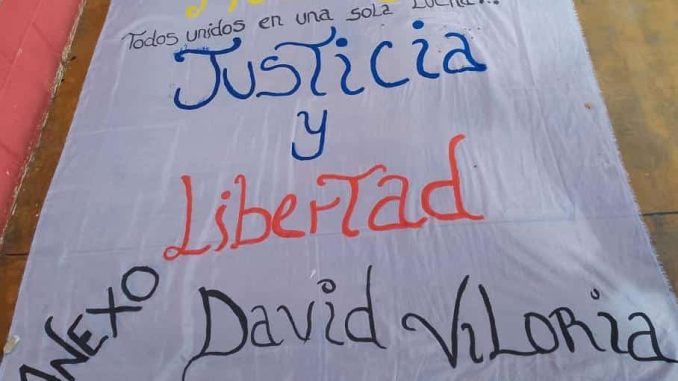 Todos unidos en una sola Lucha!!!
Justicia
y
Libertad
ANEXO
David Viloria